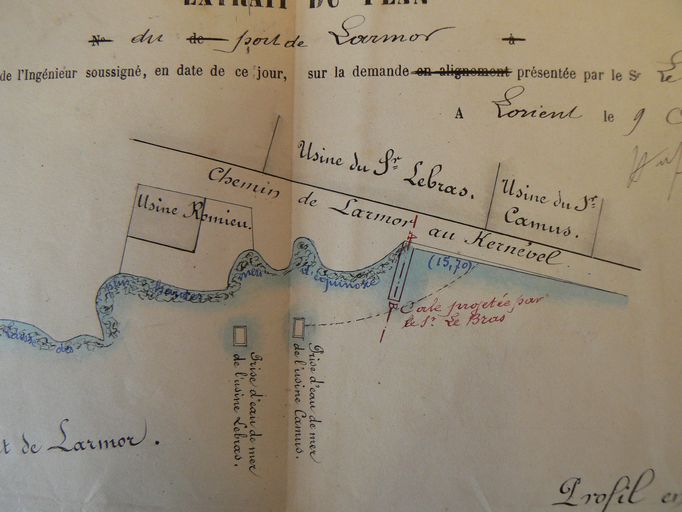 EXTRAIT DU PLAN
No du de port de Larmor à
de l'Ingénieur soussigné, en date de ce jour, sur la demande en alignement présentée par le Sr Le
A Lorient le 9
Usine du Sr Lebras.
Usine du Sr
Camus.
Chemin de Larmor au Kernével
Usine Romieu.
(15,70)
Laisse des plus hautes mers d'équinoxe
Cale projetée par
le Sr Le Bras
Prise d'eau de mer
de l'usine Lebras.
Prise d'eau de mer
de l'usine Camus.
t de Larmor.
Profil en